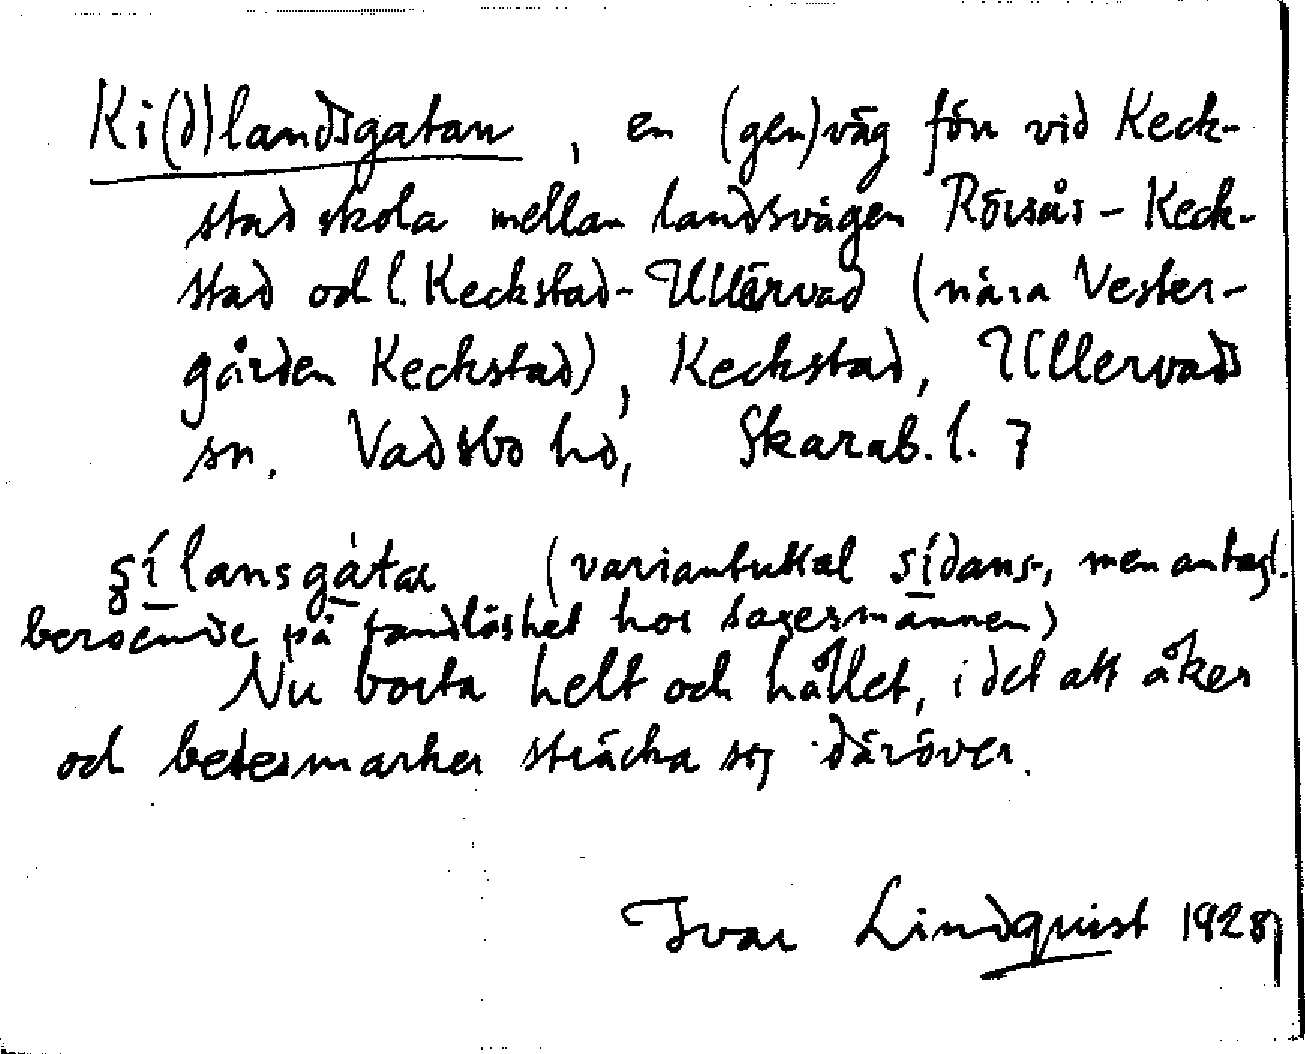 Ki(d)landsgatan, en (gen)väg förr vid Keck-
stad skola mellan landsvägen Rörsås – Keck-
stad och l. Keckstad-Ullervad (nära Vester-
gården Keckstad), Keckstad, Ullervads
sn. Vadsbo hd, Skarab. l. 7
ʂílansgàtæ (variantuttal sídans-, men antagl.
beroende på tandlöshet hos sagesmannen)
Nu borta helt och hållet, i det att åker
och betesmarker sträcka sig däröver.
Ivar Lindquist 1928